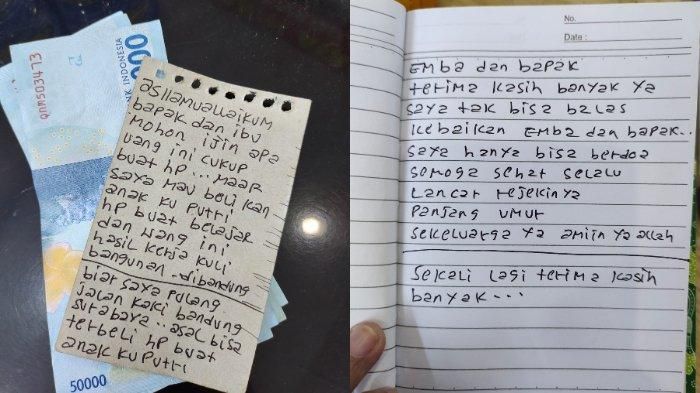 asllamuallaikum
bapak dan ibu
mohon ijin apa
uang ini cukup
buat hp... maaf
saya mau beli kan
anak ku putri
hp buat belajar
dan uang ini
hasil kerja kuli
bangunan - dibandung
biar saya pulang
jalan kaki bandung
surabaya .. asal bisa
terbeli hp buat
anak ku putri
50000
INDONESIA
000
No.
Date :
Emba dan bapak
terima kasih banyak ya
saya tak bisa balas
kebaikan Emba dan bapak..
saya hanya bisa berdoa
semoga sehat selalu
Lancar rejekinya
panjang umur
sekeluarga ya amiin ya allah
Sekali lagi terima kasih
banyak ...